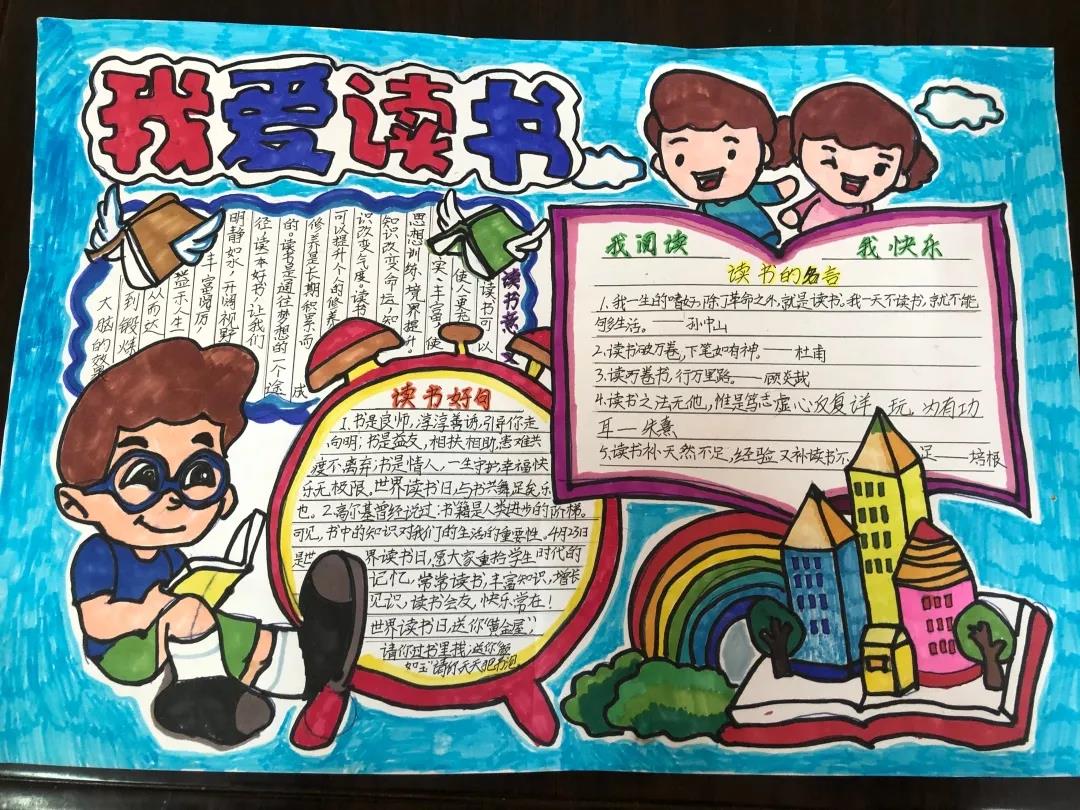 我爱读书
读书意义
读书可以
使人更充
实、丰富,使
思想训练,境界提升。
知识改变命运,知
识改变气度。读书
可以提升个人的修养
修养是长期积累而成
的。读书是通往梦想的一个途
径,读一本好书,让我们
明静如水,开阔视野
丰富阅历
益于人生
从而达
到锻炼
大脑的效果
读书好句
1.书是良师,谆谆善诱,引导你走
向明;书是益友,相扶相助,患难共
渡不离弃;书是情人,一生守护幸福快
乐无极限。世界读书日,与书共舞足矣乐
也。2.高尔基曾经说过:书籍是人类进步的阶梯。
可见,书中的知识对我们的生活的重要性。4月23日
是世界读书日,愿大家重拾学生时代的
记忆,常常读书,丰富知识,增长
见识,读书会友,快乐常在!
世界读书日,送你“黄金屋”,
请你过书里找,送你“颜
如玉”请你天天把书
我阅读 我快乐
读书的名言
1.我一生的嗜好,除了革命之外,就是读书。我一天不读书,就不能
够生活。——孙中山
2.读书破万卷,下笔如有神。——杜甫
3.读万卷书,行万里路。——顾炎武
4.读书之法无他,惟是笃志虚心反复详玩,为有功
耳—朱熹
5.读书补天然不足,经验又补读书不足——培根